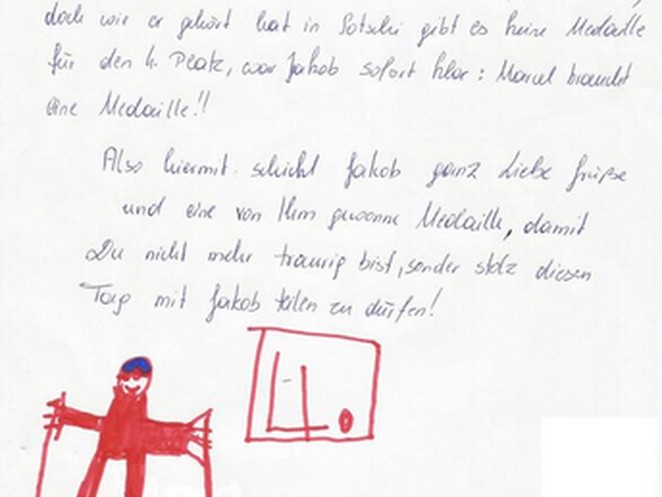 doch wie er gehört hat in Sotschi gibt es keine Medaille
für den 4. Platz, war Jakob sofort klar: Marcel braucht
eine Medaille!!
Also hiermit schickt Jakob ganz Liebe Grüße
und eine von Ihm gewonne Medaille, damit
Du nicht mehr traurig bist, sonder stolz diesen
Tag mit Jakob teilen zu dürfen!
4.